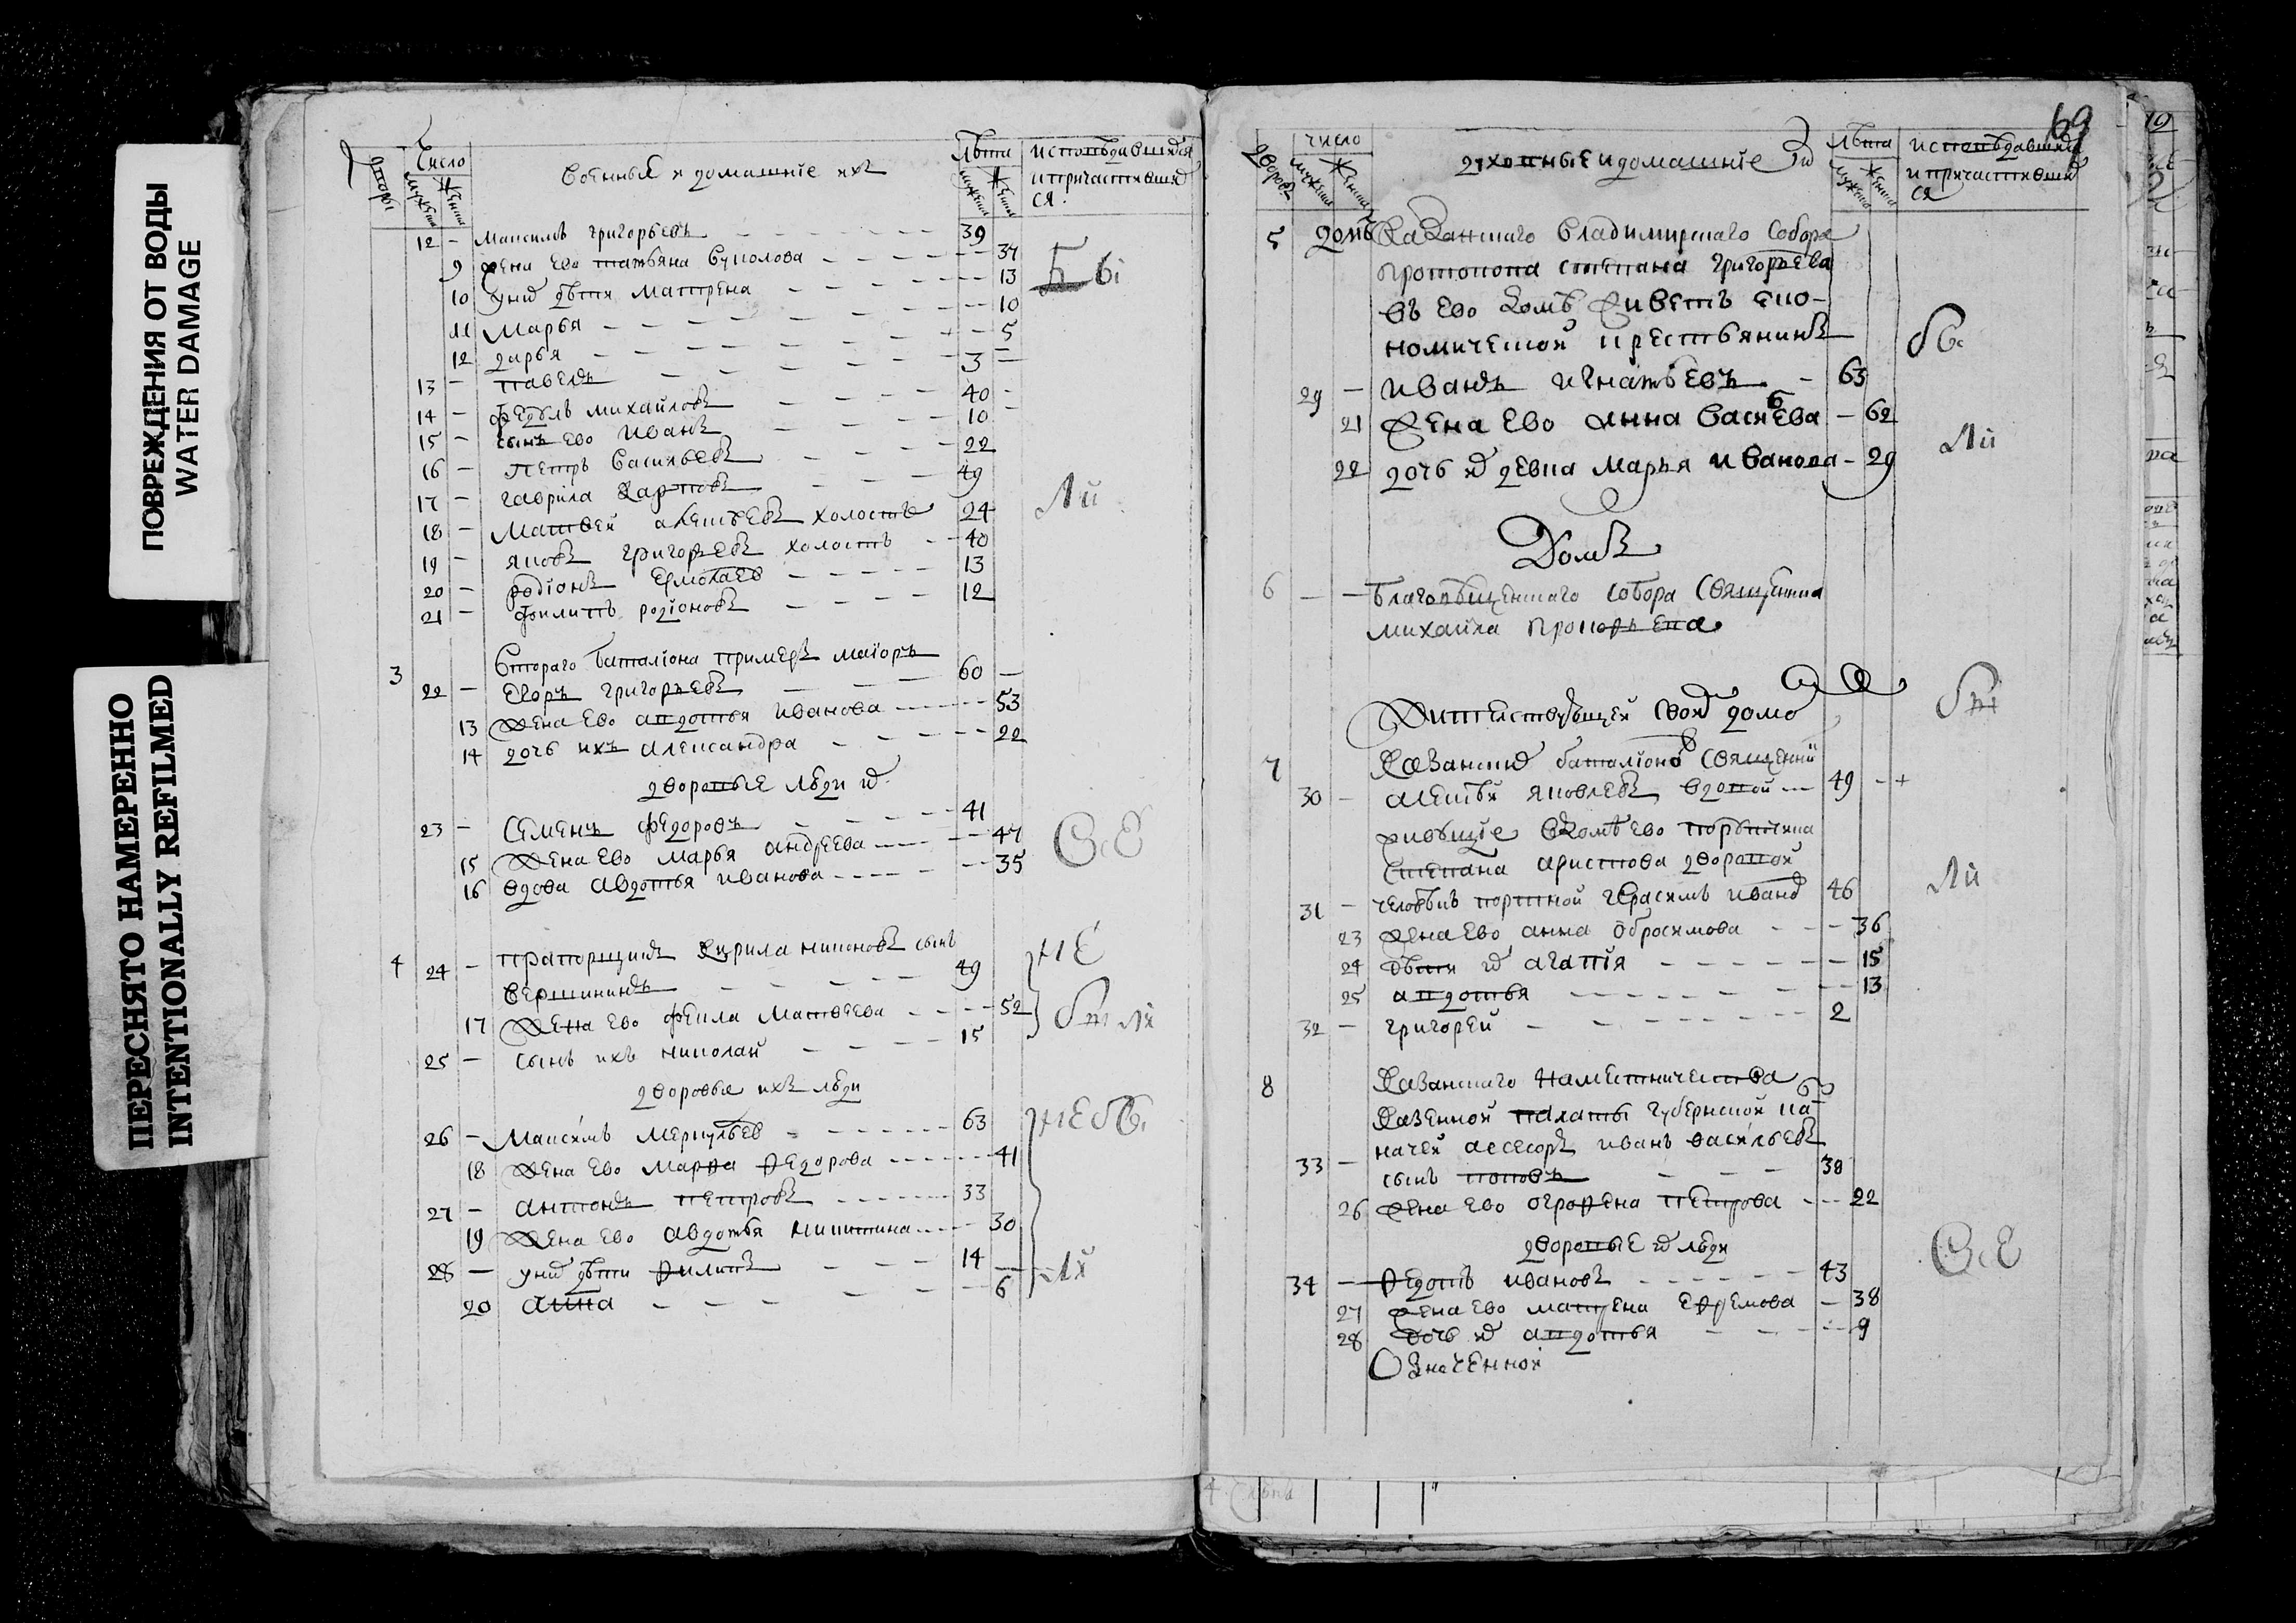 ПОВРЕЖДЕНИЯ ОТ ВОДЫ
WATER DAMAGE
ПЕРЕСНЯТО НАМЕРЕННО
INTENTIONALLY REFILMED
Число
Военныя и домашніе ихъ
лѣта
исповѣдавшихся
и причастивших
ся
12 – Максимъ Григорьевъ – 39
9 Жена ево Татьяна Вуколова – 37
10 у них дѣти Матрена – 13
11 Марья – 10
12 Дарья – 5
13 – Павелъ – 3
14 – Федоръ Михайловъ – 40
15 – сынъ ево Иванъ – 10
16 – Петръ Васильевъ – 22
17 – Гаврила Карповъ – 49
18 – Матвей Алексѣевъ холостъ 24
19 – Яковъ Григорьевъ холостъ – 40
20 – Родіонъ Ермолаев – 13
21 – Филипъ Родіоновъ – 12
3 Втораго баталіона примеръ маіоръ
22 – Егоръ Григорьевъ – 60
13 Жена ево Авдотья Иванова – 53
14 дочь ихъ Александра – 22
дворовые люди их
23 – Семенъ Федоровъ – 41
15 Жена ево Марья Андреева – 47
16 вдова Авдотья Иванова – 35
4 24 – Прапорщикъ Кирила Никоновъ сынъ
Вершининъ – 49
17 Жена ево Фекла Матвеева – 52
25 – сынъ ихъ Николай – 15
дворовыя ихъ люди
26 – Максимъ Меркульев – 63
18 Жена ево Марфа Федорова – 41
27 – Антонъ Петровъ – 33
19 Жена ево Авдотья Никитина – 30
28 – у них дѣти Филипъ – 14
20 Анна – 6
69
дворовъ
число
духовныя и домашніе их
лѣта
исповѣдавшихся
и причастивших
ся
5 домъ Казанскаго Владимирскаго Собора
протопопа Степана Григорьева
въ ево домѣ живетъ еко-
номической крестьянинъ
29 – Иванъ Игнатьевъ – 63
21 Жена ево Анна Васильева – 62
22 дочь их девка Марья Иванова – 29
Домъ
6 – – Благовѣщенскаго Собора Священника
Михаила
Жительствующей в своем доме
7 Казанских баталіоновъ Священник
30 – Алексѣй Яковлевъ вдовой – 49 – +
живущіе в домѣ ево порутчика
Степана Аристова дворовой
31 – человѣкъ портной Герасимъ Иванов 46
23 Жена ево Анна Обросимова – 36
24 дѣти их Агапія – 15
25 Авдотья – 13
32 – Григорей – 2
8 Казанскаго Намѣстничества
Казенной палаты губернской ка-
начей асесоръ Иванъ Васильевъ
33 – сынъ Поповъ – 38
26 Жена ево Огрофена Петрова – 22
дворовые их люди
34 – Федотъ Ивановъ – 43
27 Жена ево Матрена Ефремова – 38
28 дочь их Авдотья – 9
Означенной